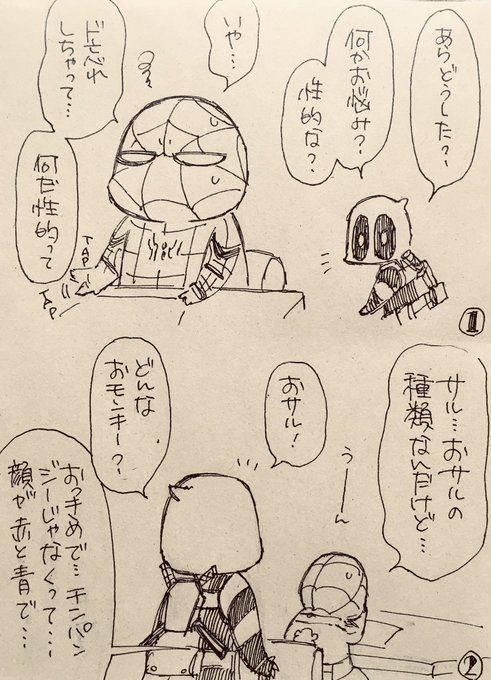 あらどうした?
何かお悩み?
性的な?
いや…
ドも忘れ
しちゃって…
何だ性的って
TAP
TAP
1
サル…おサルの
種類なんだけど…
うーーん
おサル!
どんな
おモンキー?
おっきめで…チンパン
ジーじゃなくって…
顔が赤と青で…
2